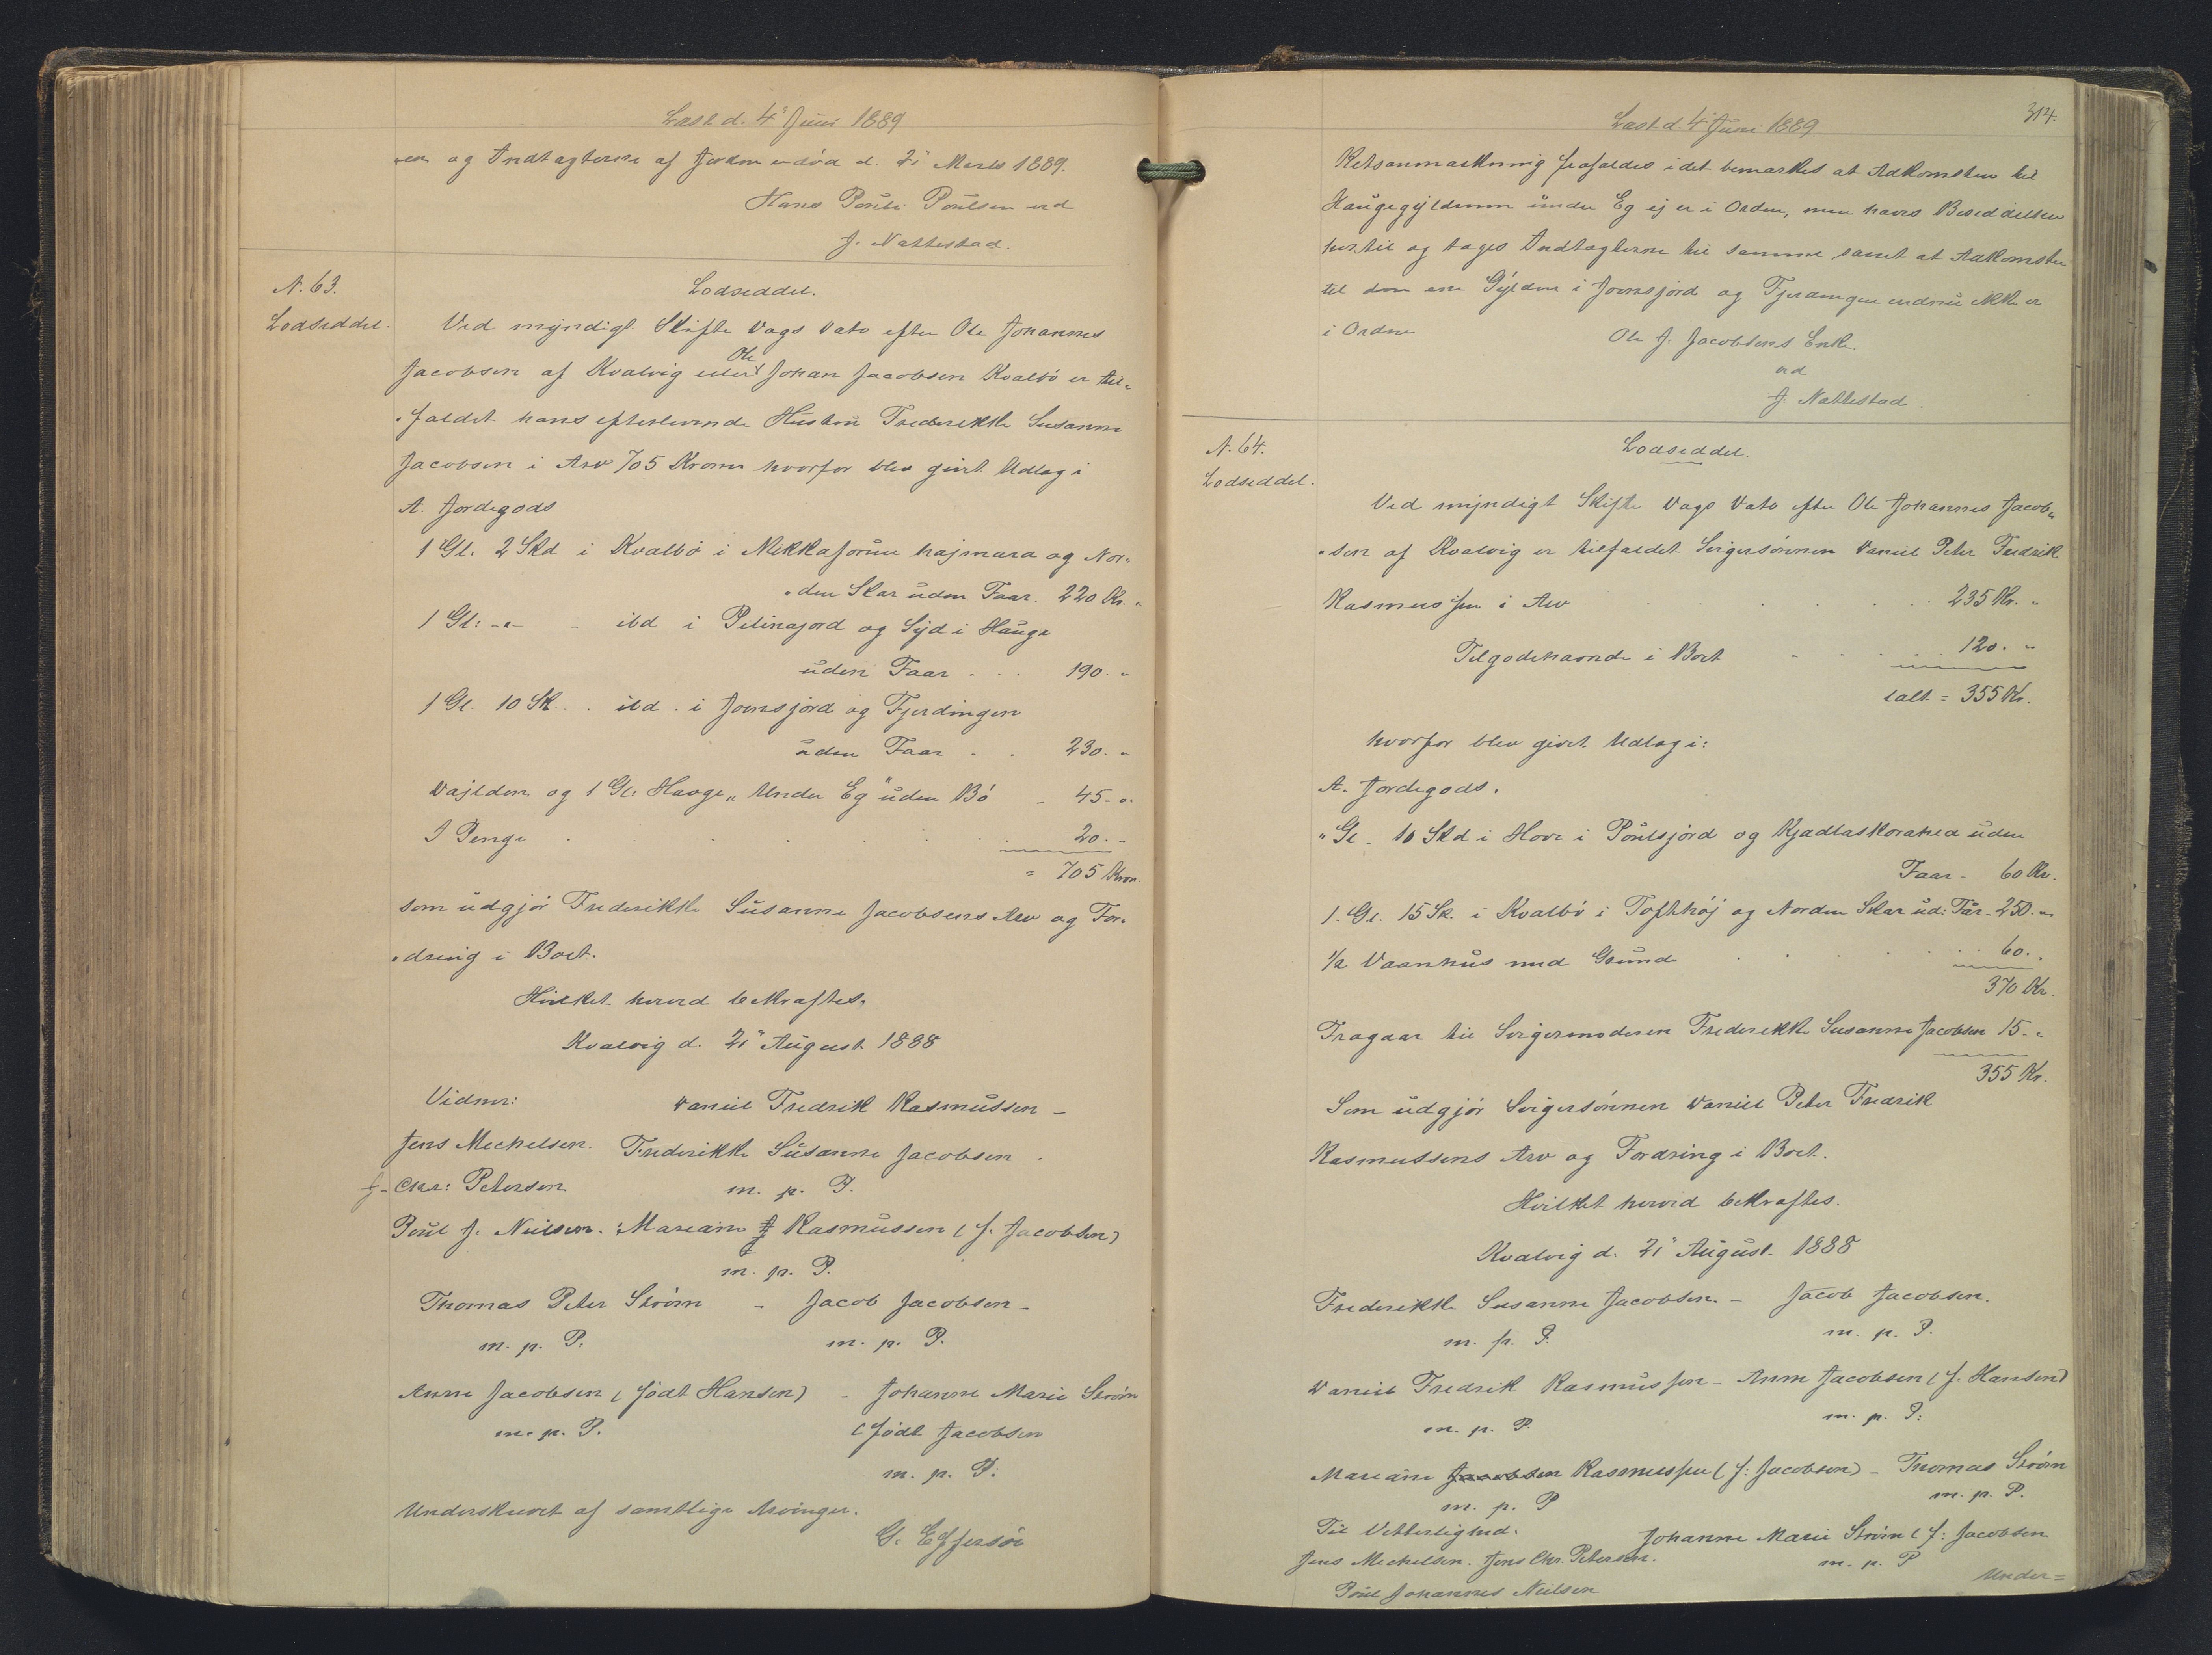 Læst d. 4' Juni 1889
ren og Indtægterne af Jorden endød d. 21' Marts 1889.
Hans Pouli Poulsen ved
J. Nattestad.
N. 63.
Lodseddel.
Lodseddel.
Ved myndigt Skifte Dags Dato efter Ole Johannes
Jacobsen af Kvalvig eller Ole Johan Jacobsen Kvalbö er til-
faldet hans efterlevende Hustru Frederikke Susanne
Jacobsen i Arv 705 Kroner hvorfor blev givet Udlæg i
A. Jordegods
1 Gl. 2 Skd i Kvalbö i Nikkaforun hajmara og Nor-
den Skar uden Faar. 220 Kr. "
1 Gl: -"- - ibd i Pilinajord og Syd i Hauge
uden Faar . . . 190. "
1 Gl. 10 Sk. . ibd . i Joensjord og Fjerdingen
uden Faar . . 230. "
Dajlden og 1 Gl: Hauge "Under Eg" uden Bö - 45. "
I Penge . . . . . . 20. "
= 705 Kron.
som udgjör Frederikke Susanne Jacobsens Arv og For-
dring i Boet.
Hvilket herved bekræftes.
Kvalvig d. 21" August 1888
Vidner: Daniel Fredrik Rasmussen -
Jens Mechelsen. Frederikke Susanne Jacobsen.
J. Chr: Petersen m. p. P.
Poul J. Nielsen. Mariane J Rasmussen (f. Jacobsen)
m. p. P.
Thomas Peter Ström - Jacob Jacobsen -
m. p. P. m. p. P.
Anne Jacobsen (födt Hansen) - Johanne Marie Ström
m. p. P. (födt Jacobsen
m. p. P:
Underskrevet af samtlige Arvinger.
G. Effersöe
314.
Læst d. 4' Juni 1889
Retsanmærkning frafaldes idet bemærkes at Adkomsten til
Haugegyldenen under Eg ej er i Orden, men haves Besiddelsen
hertil og tages Indtægterne til samme samt at Adkomsten
til den ene Gylden i Joensjord og Fjerdingen endnu ikke er
i Orden
Ole J. Jacobsens Enke.
ved
J. Nattestad.
N. 64.
Lodseddel.
Lodseddel.
Ved myndigt Skifte Dags Dato efter Ole Johannes Jacob-
sen af Kvalvig er tilfaldet Svigersönnen Daniel Peter Fredrik
Rasmussen i Arv . . . . . 235 Kr. "
Tilgodehavende i Boet . . . . 120. "
ialt = 355 Kr.
hvorfor blev givet Udlæg i:
A. Jordegods.
" Gl. 10 Skd i Hove i Poulsjörd og Kjadlaskorahed uden
Faar - 60 Kr.
1. Gl. 15 Sk. i Kvalbö i Tofthöj og Norden Skar ud: Får - 250. "
1/2 Vaanhus med Grund . . . . 60. "
370 Kr.
Fragaar til Svigermoderen Frederikke Susanne Jacobsen 15. "
355 Kr.
Som udgjör Svigersönnen Daniel Peter Fredrik
Rasmussens Arv og Fordring i Boet.
Hvilket herved bekræftes.
Kvalvig d. 21" August 1888
Frederikke Susanne Jacobsen. - Jacob Jacobsen.
m. p. P. m. p. P.
Daniel Fredrik Rasmussen - Anne Jacobsen (f. Hansen)
m. p. P. m. p. P:
Mariane Jacobsen Rasmussen (f: Jacobsen) - Thomas Ström
m. p. P m. p. P.
Til Vitterlighed. Johanne Marie Ström (f: Jacobsen
Jens Mechelsen. Jens Chr. Petersen. m. p. P
Poul Johannes Nielsen Under=